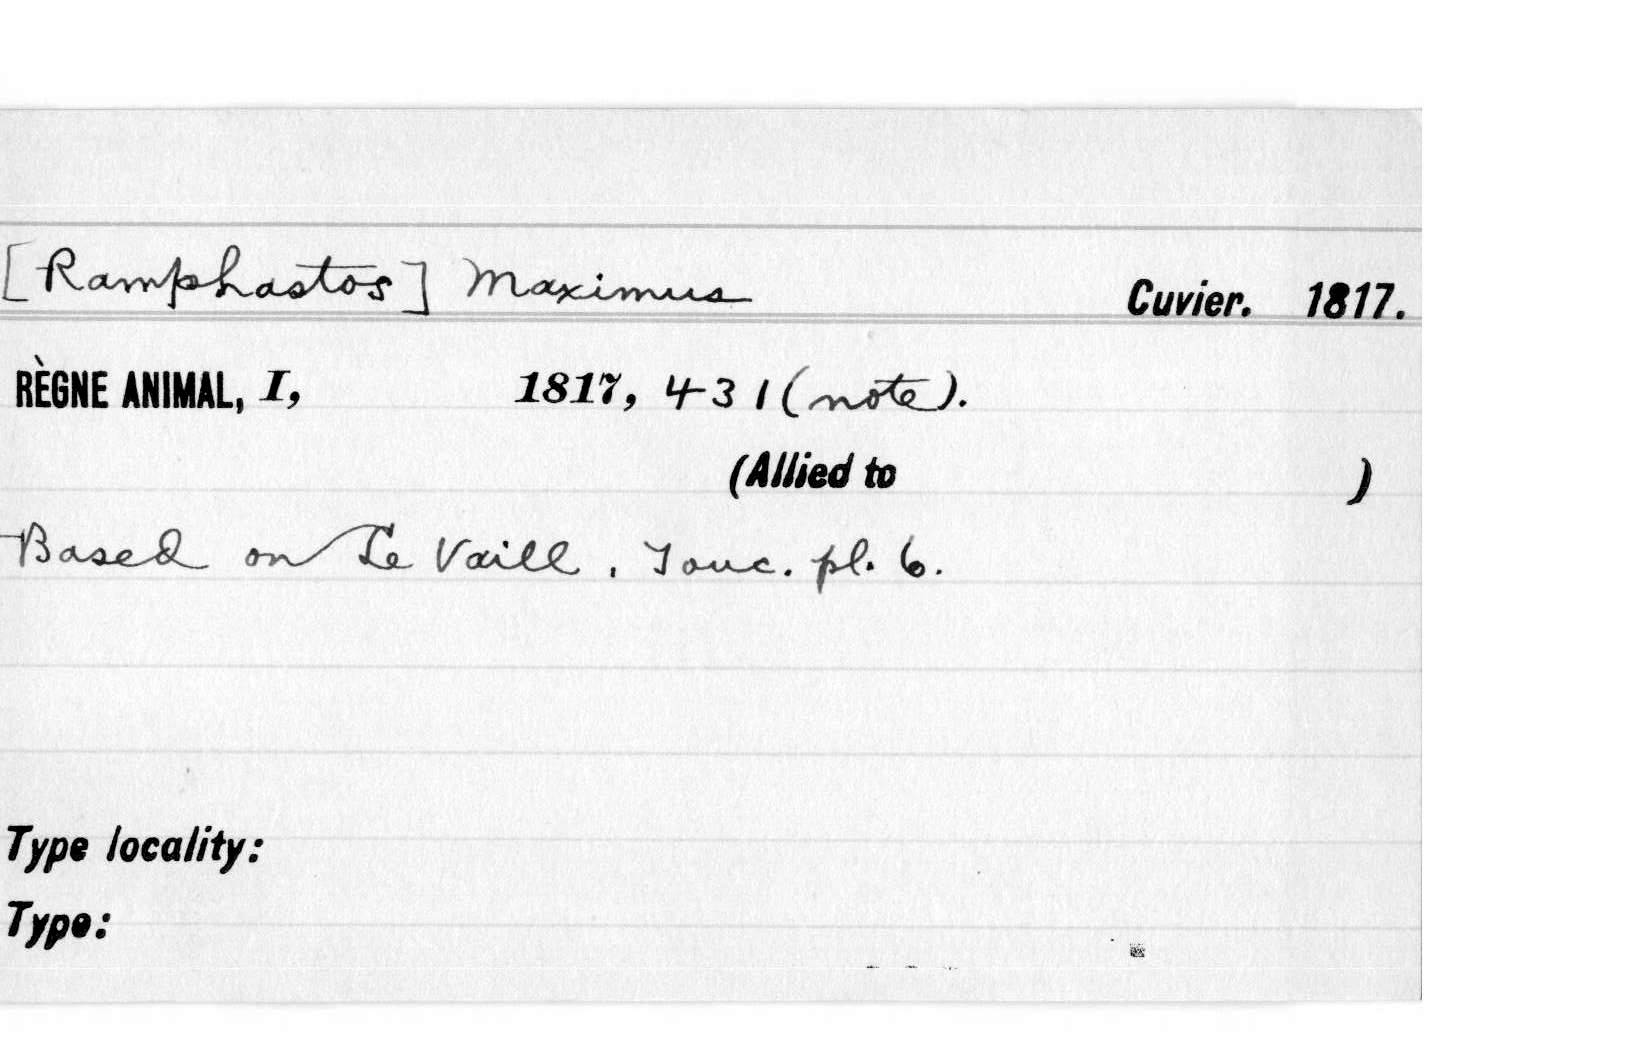 [Ramphastos] Maximus Cuvier. 1817.
RÈGNE ANIMAL, I, 1817, 431 (note).
(Allied to )
Based on Le Vaill. Touc. pl. 6.
Type locality:
Type: